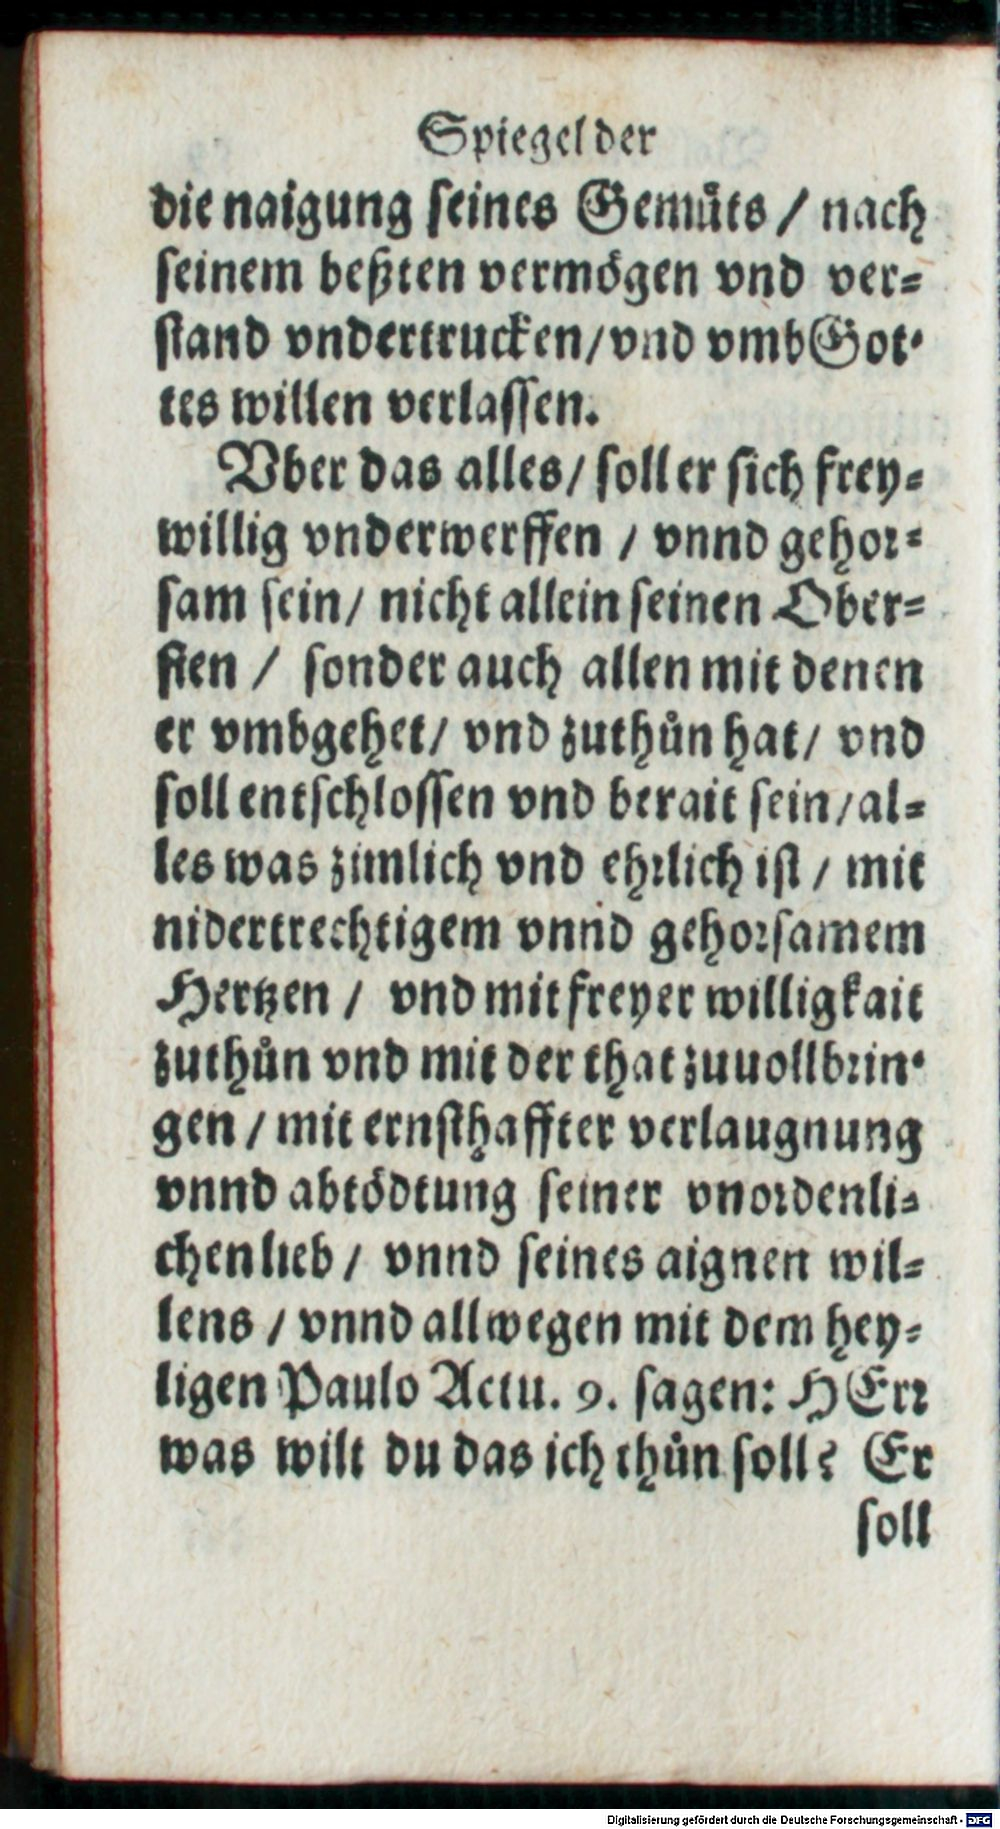 Spiegel der
die naigung seines Gemuͤts / nach
seinem beßten vermoͤgen vnd ver⸗
stand vndertrucken/vnd vmb Got⸗
tes willen verlassen.
Vber das alles/ soll er sich frey⸗
willig vnderwerffen / vnnd gehor⸗
sam sein/ nicht allein seinen Ober⸗
sten / sonder auch allen mit denen
er vmbgehet/ vnd zuthůn hat/ vnd
soll entschlossen vnd berait sein/al⸗
les was zimlich vnd ehrlich ist / mit
nidertrechtigem vnnd gehorsamem
Hertzen / vnd mit freyer willigkait
zuthůn vnd mit der that zuuollbrin⸗
gen / mit ernsthaffter verlaugnung
vnnd abtoͤdtung seiner vnordenli⸗
chen lieb / vnnd seines aignen wil⸗
lens / vnnd allwegen mit dem hey⸗
ligen Paulo Actu. 9. sagen: HErr
was wilt du das ich thůn soll? Er
soll
Digitalisierung gefördert durch die Deutsche Forschungsgemeinschaft - DFG